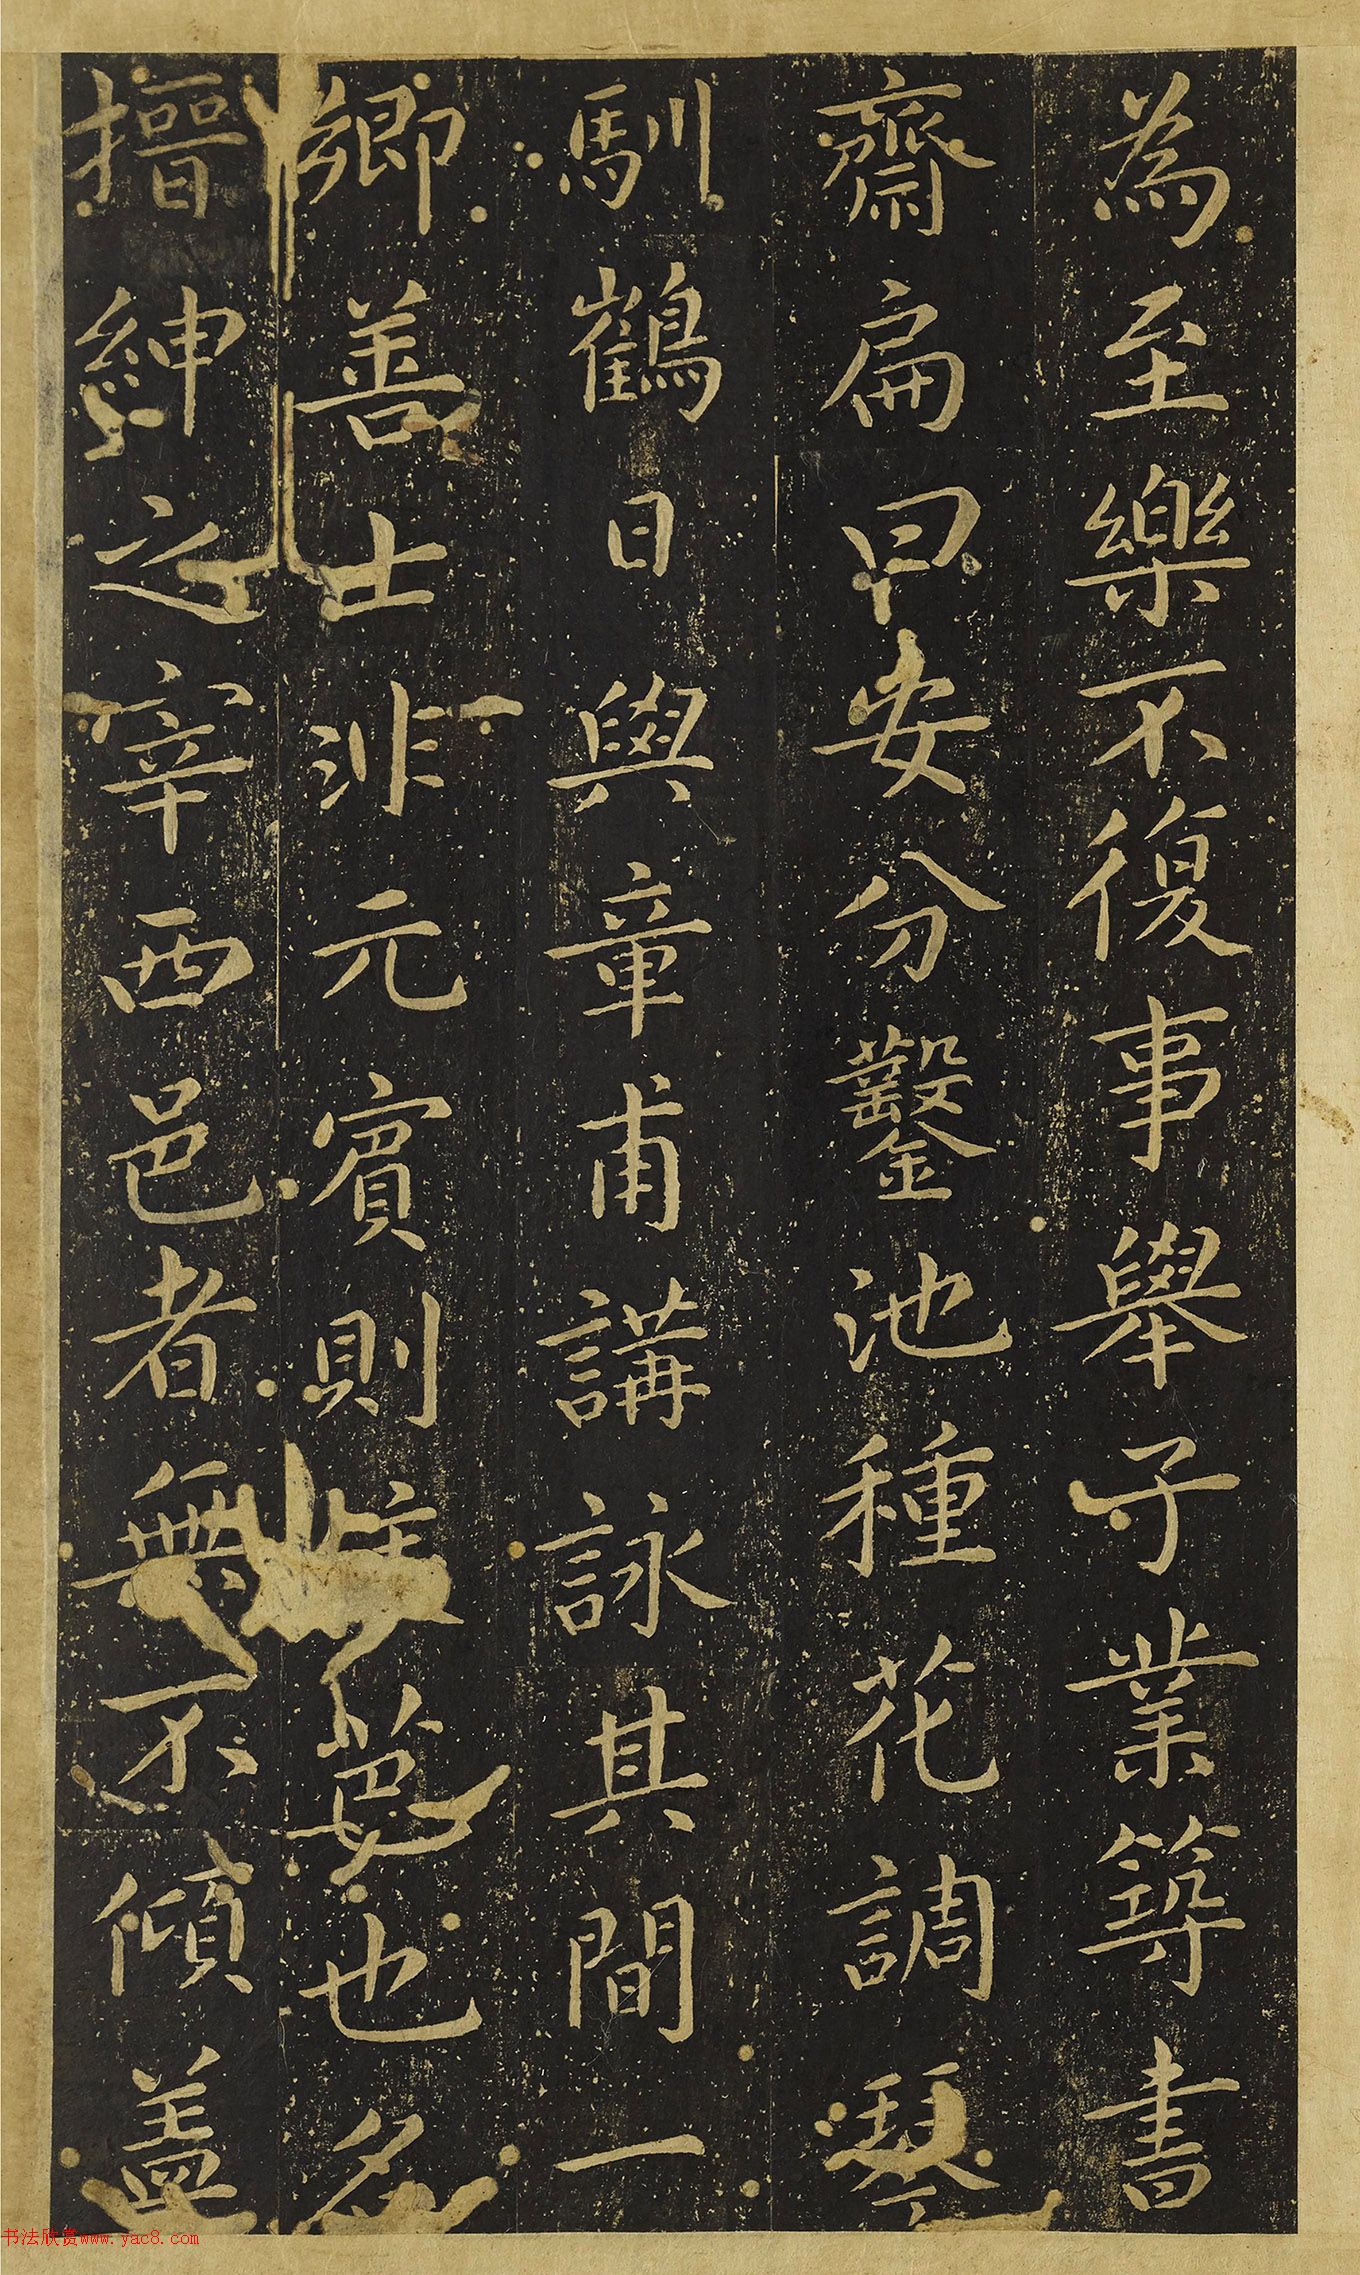 為至樂不復事舉子業築書
齋扁曰安分鑿池種花調琴
馴鶴日與章甫講詠其間一
鄉善士非元賓則誰也名
搢紳之宰西邑者無不傾蓋
书法欣赏www.yac8.com